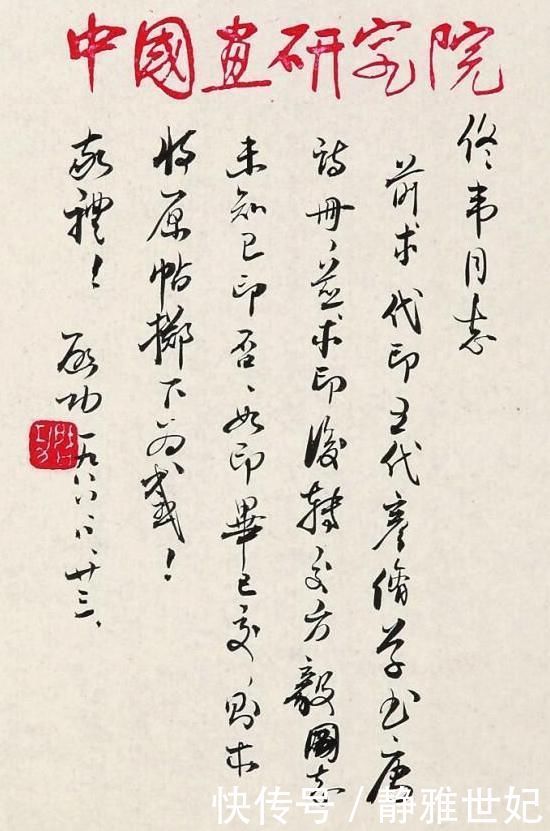 中國畫研究院
佟韦同志
前求代印五代彦脩草书唐
诗册、並求印後转交方毅志
未知已印否、如印畢已交、则求
将原帖掷下为感！
敬禮！ 启功 一九八八、八、廿三、
快传号 / 静雅世妃